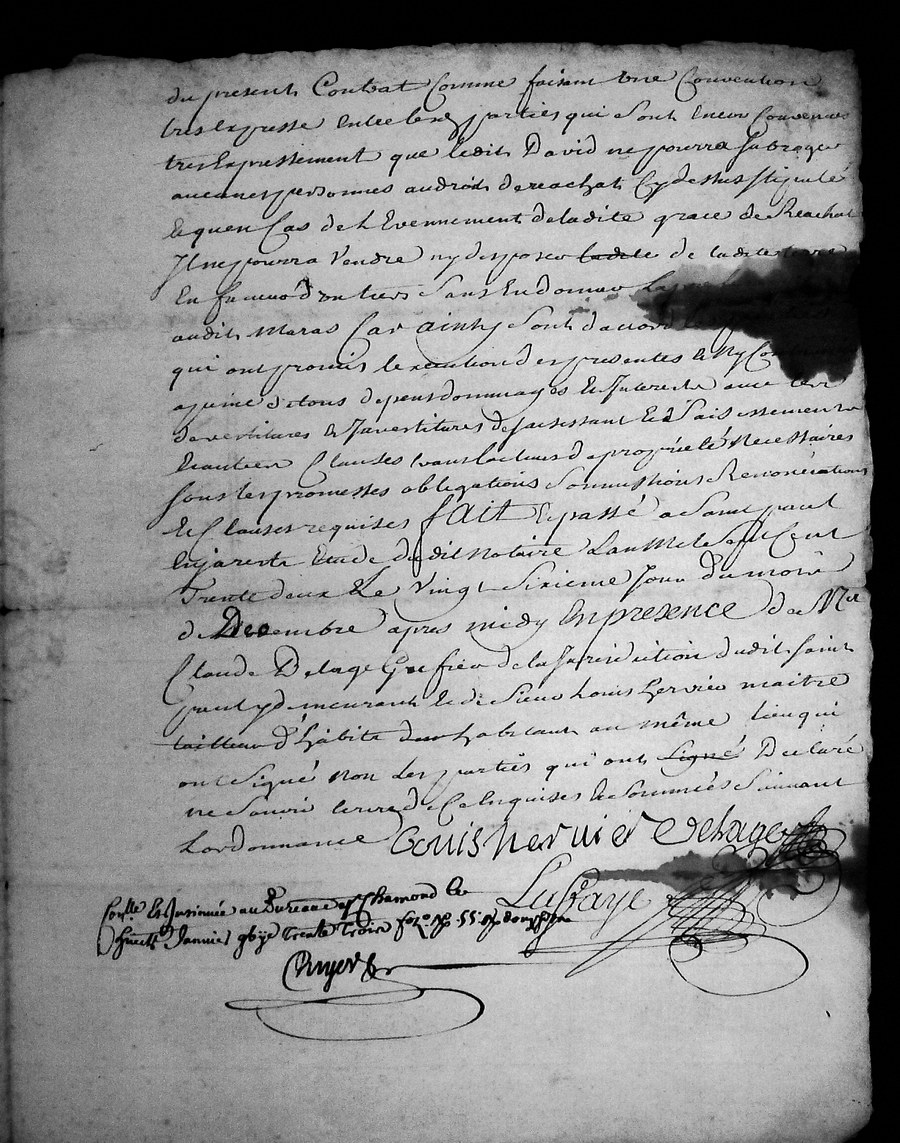 du present Contrat Comme faisant une Convention
tres expresse entre lesd parties qui Sont encor Convenues
tres Expressement que ledit David ne pourra Subroger
aucunes personnes au droit de reachat Cy dessus stipulé
et qu'en Cas de l'Evennement de ladite grace de Reachat
Il ne pourra Vendre ny disposer ladite de ladite terre
En faveur d'un tiers Sans En donner
audit Maras Car ainsy Sont d'acord
qui ont promis l'execution des presentes et n'y
a peine de tous depens dommages et Interets avec les
devestitures et Investitures desaisissant et Saisissement
et autres Clauses translatives de propriété Necessaires
sous les promesses obligations Soumissions Renonciations
et Clauses requises fait et passé a Saint paul
En jarest Etude dudit Notaire L'an Mil Sept Cent
Trente deux et Le Vingt Sixieme Jour du mois
de Decembre apres midy En presence de Me
Claude Delage Greffier de la Jurisdiction dudit Saint
paul y demeurant et de Sieur Louis hervier maitre
tailleur d'habits habitant au même lieu qui
ont Signé non les parties qui ont Signé Declaré
ne Savoir ecrire de Ce Enquises et Sommées Suivant
L'ordonnance Louis hervier Delage
Lafaye
Conlle Et Insinuée au Bureau de St Chamond le
Janvier trente Trois fol. 55